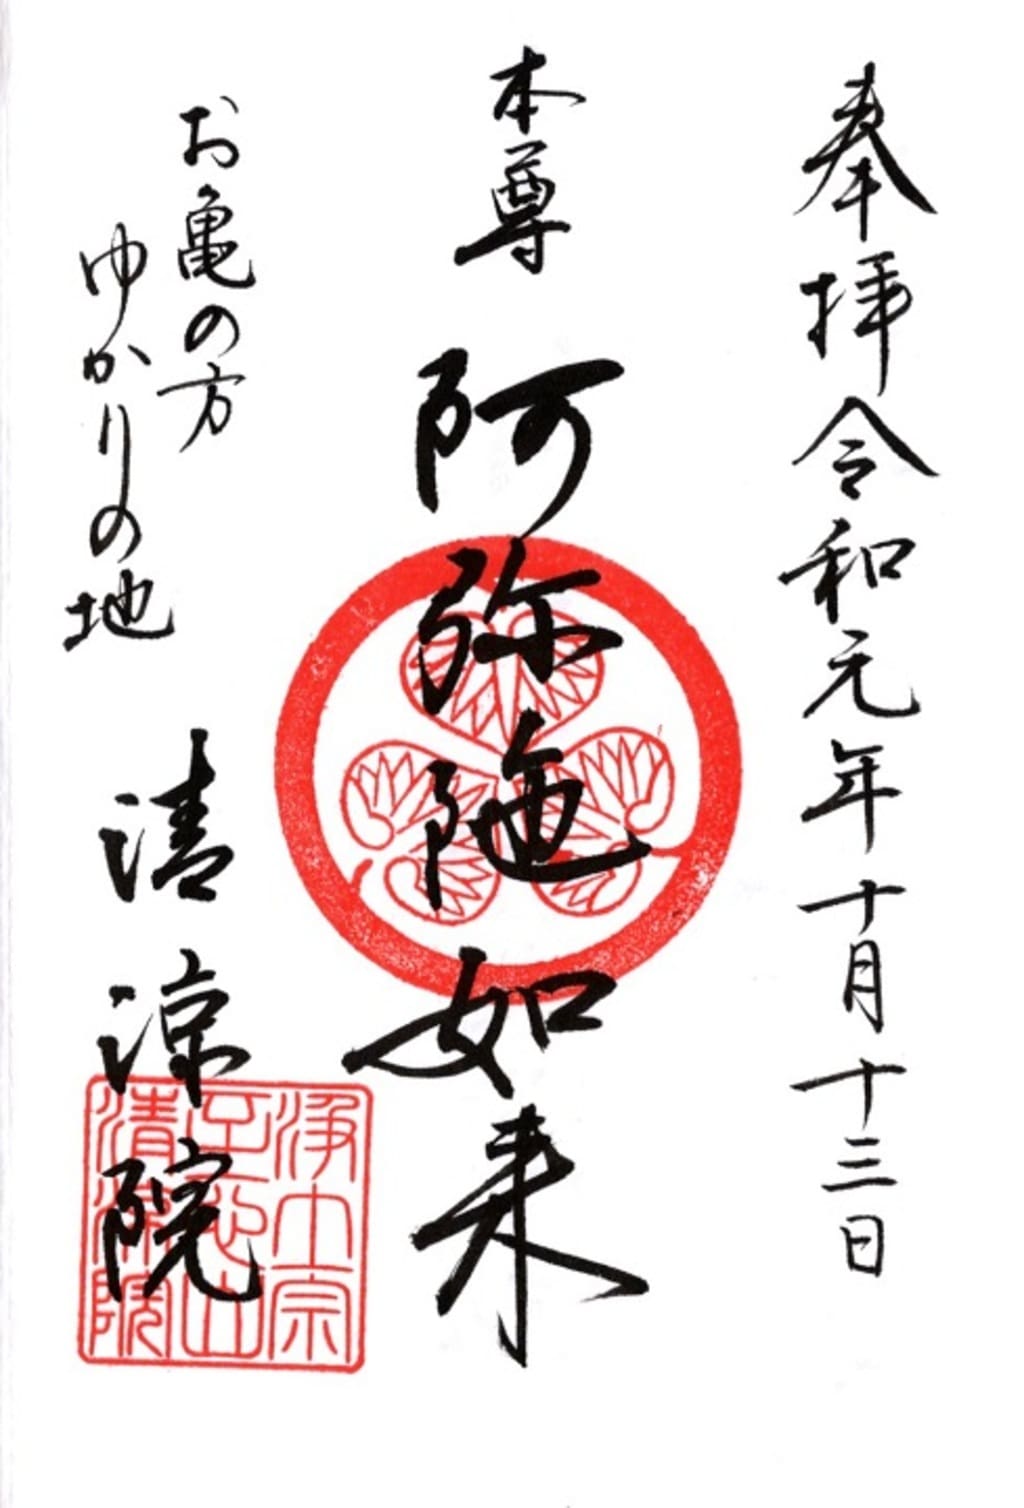 奉拝令和元年十月十三日
本尊
阿弥陀如来
お亀の方
ゆかりの地
清涼院
浄土宗
清涼院